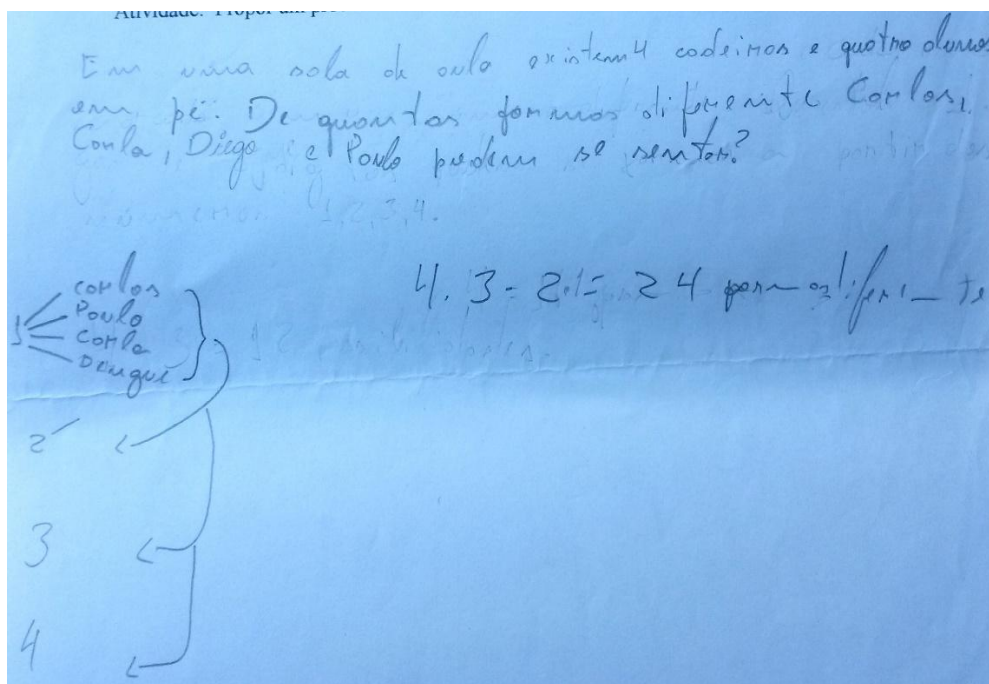 Atividade: Propor um
Em uma sala de aula existem 4 cadeiras e quatro alunos
em pé. De quantas formas diferente Carlos,
Carla, Diego e Paulo podem se sentar?
números 1,2,3,4.
4. 3 - 2 1 = 24 formas diferente
1
Carlos
Paulo
Carla
2
3
4